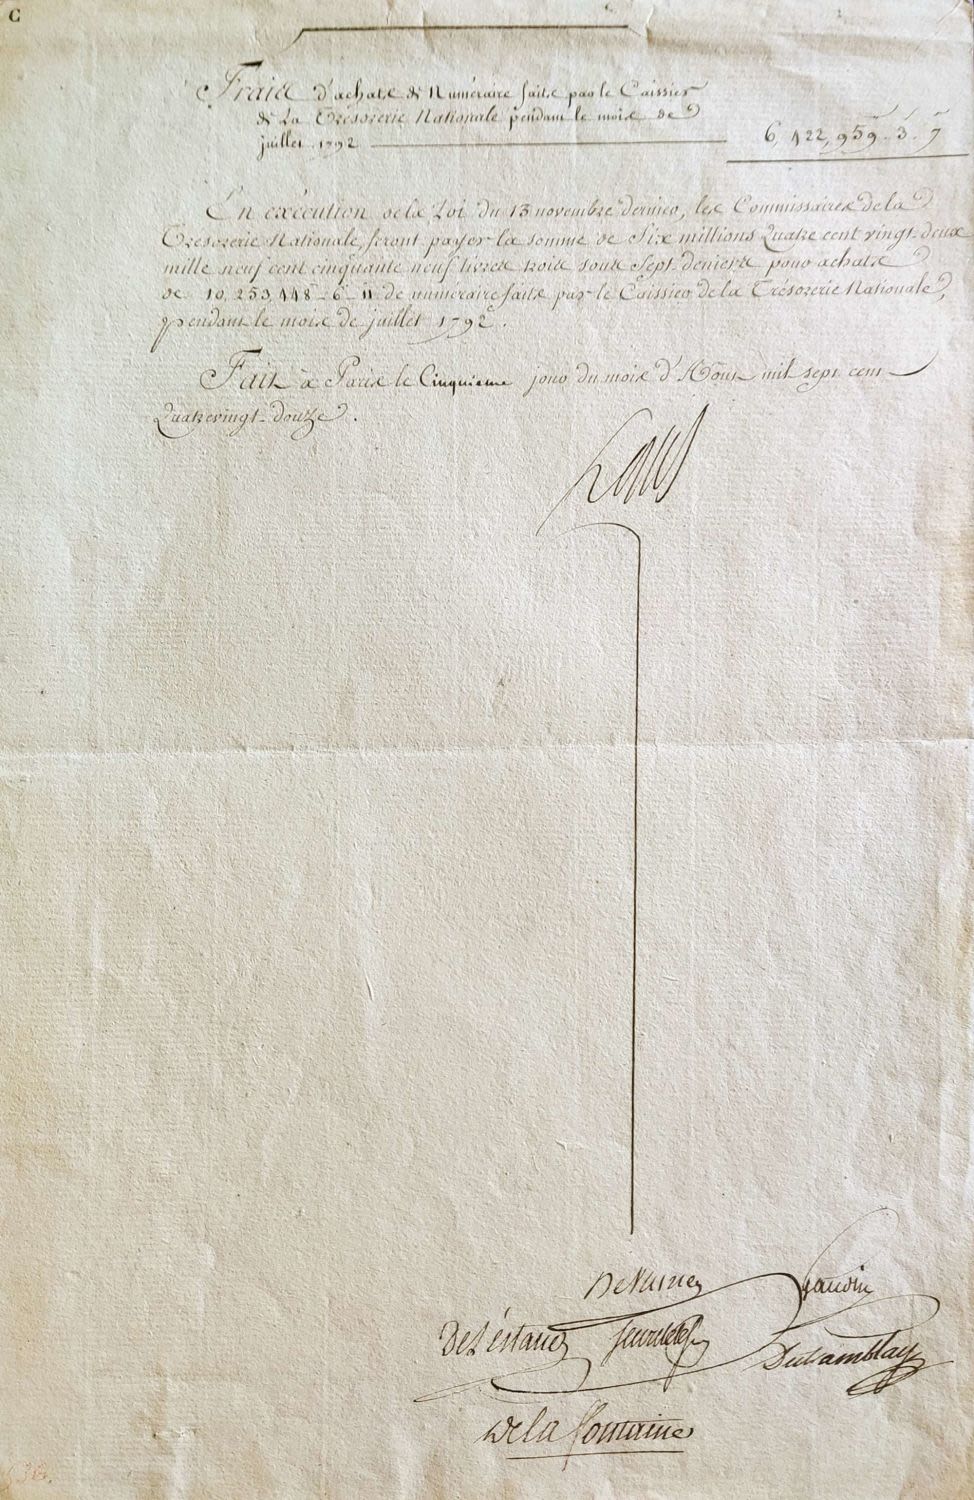 C
Frais d'achats de Numéraire faits par le Caissier
de La Trésorerie Nationale pendant le mois de
juillet 1792
6,422,959. 3. 7
En exécution de la Loi du 13 novembre dernier, les Commissaires de la
Trésorerie Nationale, feront payer la somme de Six millions Quatre cent vingt deux
mille neuf cent cinquante neuf livres trois sous Sept deniers pour achats
de 10,253,448 - 6 - 11 de numéraire faits par le Caissier de la Trésorerie Nationale,
pendant le mois de juillet 1792.
Fait à Paris le Cinquieme jour du mois d'Aoust mil sept cent
Quatrevingt-douze.
Louis
DeVaines Gaudin
De Lestang DuTramblay
De la fontaine